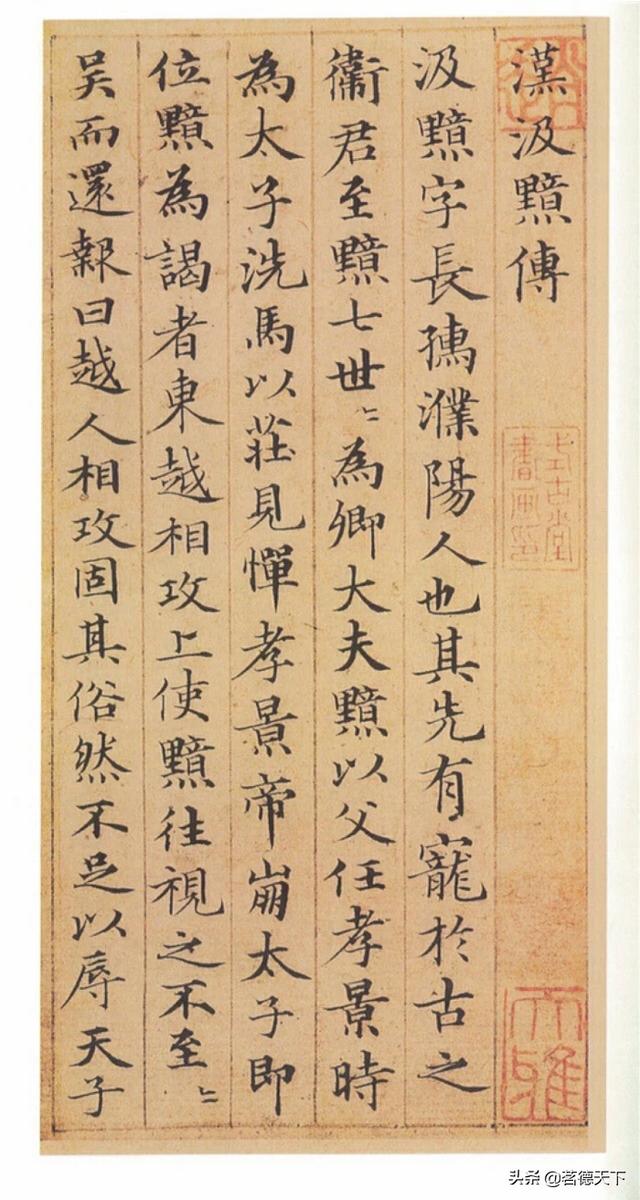 漢汲黯傳
汲黯字長孺濮陽人也其先有寵於古之
衞君至黯七世〻為卿大夫黯以父任孝景時
為太子洗馬以莊見憚孝景帝崩太子即
位黯為謁者東越相攻上使黯往視之不至〻
吳而還報曰越人相攻固其俗然不足以辱天子
式古堂書畫印
大雅
头条 @茗德天下